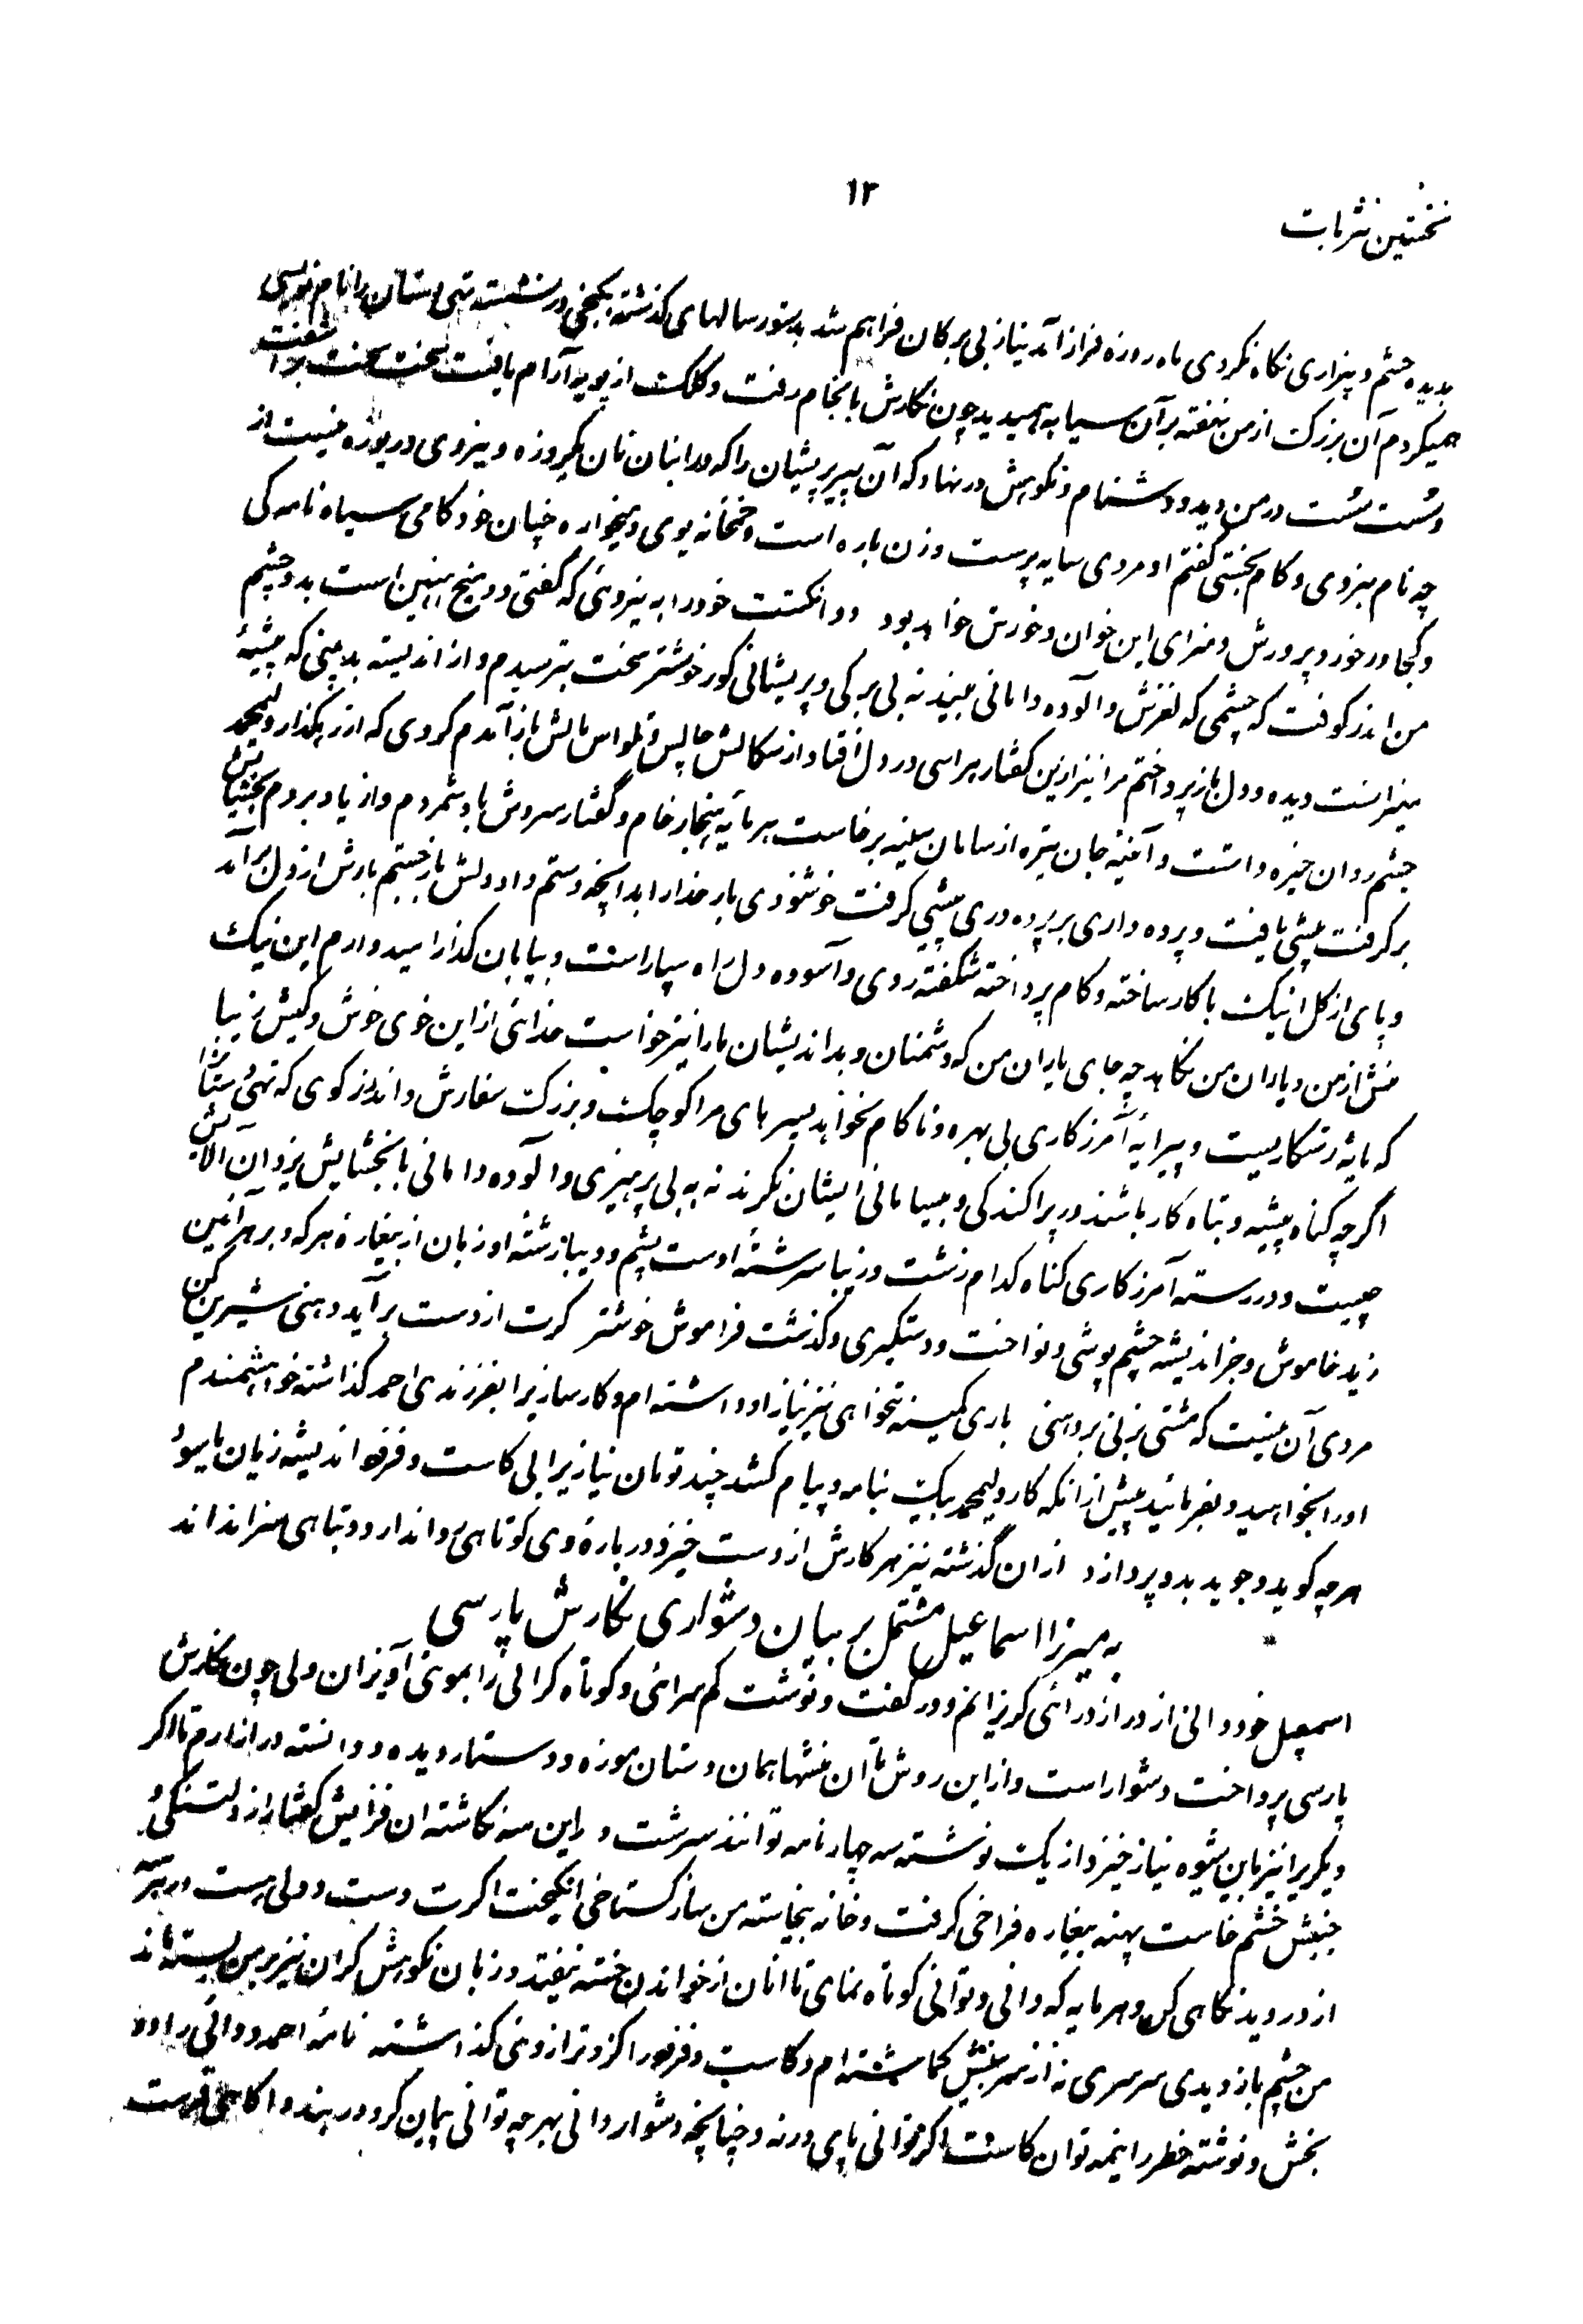 ۱۳
نخستین نثریات
بدیده چشم و بیزاری نگاه نکردی ماه روزه فراز آمد نیاز بی برگان فراهم شد بدستور سالهای گذشته بکنجی در نشسته تهی دستان را نام نویسی
همیکردم آن بزرگ از من نهفته بر آن سیاهه همیدید چون نگارش بانجام رفت و کلک از پویه آرام یافت سخت سخت برآشفت
و سست سست در من دید و دشنام و نکوهش در نهاد که آن پیر پریشان را که در انبان نان یکروزه و نیروی دریوزه نیست از
چه نام نبردی و کام نبخشی گفتم او مردی سایه پرست و زن باره است و خمخانه پوی و میخواره چنان خودکامی سیاه نامه کی
و کجا در خورد پرورش و سزای این خوان و خورش خواهد بود دو انگشت خود را به نیروئی که گفتی دو میخ آهنین است بدو چشم
من اندر کوفت که چشمی که لغزش و آلوده دامانی بیند نه بی برگی و پریشانی کور خوشتر سخت بترسیدم و از اندیشه بدبینی که پیشه
بینش است دیده و دل باز پرداختم مرا نیز ازین گفتار هراسی در دل افتاد و از سگالش چالپس و تلواس مالش باز آمدم کردی که از رهگذار ولیمحمد
چشم روان خیره داشت و آئینه جان تیره از سامان سینه برخاست هر مایه هنجار خام و گفتار سروش باد شمردم و از یاد بردم بخشایش
برگرفت پیشی یافت و پرده داری بر پرده دری پیشی گرفت خوشنودی بار خدا را بدانچه دستم داد دلش باز جستم بارش از دل برآمد
و پای از گل اینک با کار ساخته و کام پرداخته شگفته روی و آسوده دل راه سپار است و بیابان گذار امیدوارم این نیک
منش از من و یاران من نکاهد چه جای یاران من که دشمنان و بداندیشان ما را نیز خواست خدائی از این خوی خوش و کیش زیبا
که مایه رستگاریست و پیرایه آمرزگاری بی بهره و ناکام نخواهد پسرهای مرا کوچک و بزرگ سفارش و اندرز گوی که تهی دستان را
اگرچه گناه پیشه و تباه کار باشند در پراکندگی و بیسامانی ایشان نگرند نه به بی پرهیزی و آلوده دامانی با بخشایش یزدان آلایش
چیست و در رسته آمرزگاری گناه کدام زشت و زیبا سرشته اوست پشم و دیبا رشته او زبان از بیغاره هر که و بر هر آئین
زید خاموش و جز اندیشه چشم پوشی و نواخت و دستگیری و گذشت فراموش خوشتر گرت از دست برآید دهنی شیرین کن
مردی آن نیست که مشتی بزنی بر دهنی باری کمینه تنخواهی نیز نیاز او داشته ام و کارسازیرا بفرزندی احمد گذاشته خواهشمندم
او را بخواهید و بفرمائید پیش از آنکه کار ولیمحمد بیک بنامه و پیام کشد چند تومان نیازیرا بی کاست و فزود اندیشه زیان یا سود
هر چه گوید و جوید بدو پردازد از آن گذشته نیز هر کارش از دست خیزد درباره وی کوتاهی روا ندارد و تباهی سزا نداند
به میرزا اسماعیل مشتمل بر بیان دشواری نگارش پارسی
اسمعیل خود دانی از دراز درائی گریزانم و در گفت و نوشت کم سرائی و کوتاه گرائی را بموئی آویزان ولی چون نگارش
پارسی پرداخت دشوار است و از این روش تا آن منشها همان دستان موزه و دستار دیده و دانسته در اندازم تا اگر
دیگریرا نیز باین شیوه نیاز خیزد از یک نوشته سه چهار نامه توانند سرشت و این سه نگاشته از فزایش گفتار از دلتنگی و
جنبش خشم خاست پهنه بیغاره فراخی گرفت و خامه بخیاسته من ساز گستاخی انگیخت اگرت دست و دلی هست
از در دید نگاهی کن و هر مایه که دانی و توانی کوتاه نمای تا آنان از خواندن خسته نیفتند و زبان نکوهش گران نیز بر من بسته ماند
من چشم باز دیدی سرسری نه از سر بینش گماشته ام و کاست و فزود را گز و ترازوئی گذاشته نامه احمد و دائی را
بخش و نوشته خطر را نیمه توان کاست اگر توانی پای ورنه و چنانچه دشوار دانی بهر چه توانی پیمان کرد و در بند و آگاهی